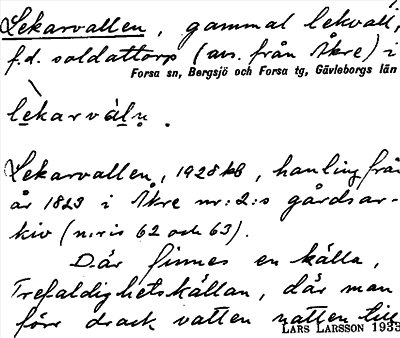 Lekarvallen, gammal lekvall,
f.d. soldattorp (avs. från Åkre) i
Forsa sn, Bergsjö och Forsa tg, Gävleborgs län
lekarvàlṇ.
Lekarvallen, 1928 kb, handling från
år 1823 i Åkre nr: 2:s gårdsar-
kiv (n:ris 62 och 63).
Där finnes en källa,
Trefaldighetskällan, där man
förr drack vatten natten till
LARS LARSSON 1933